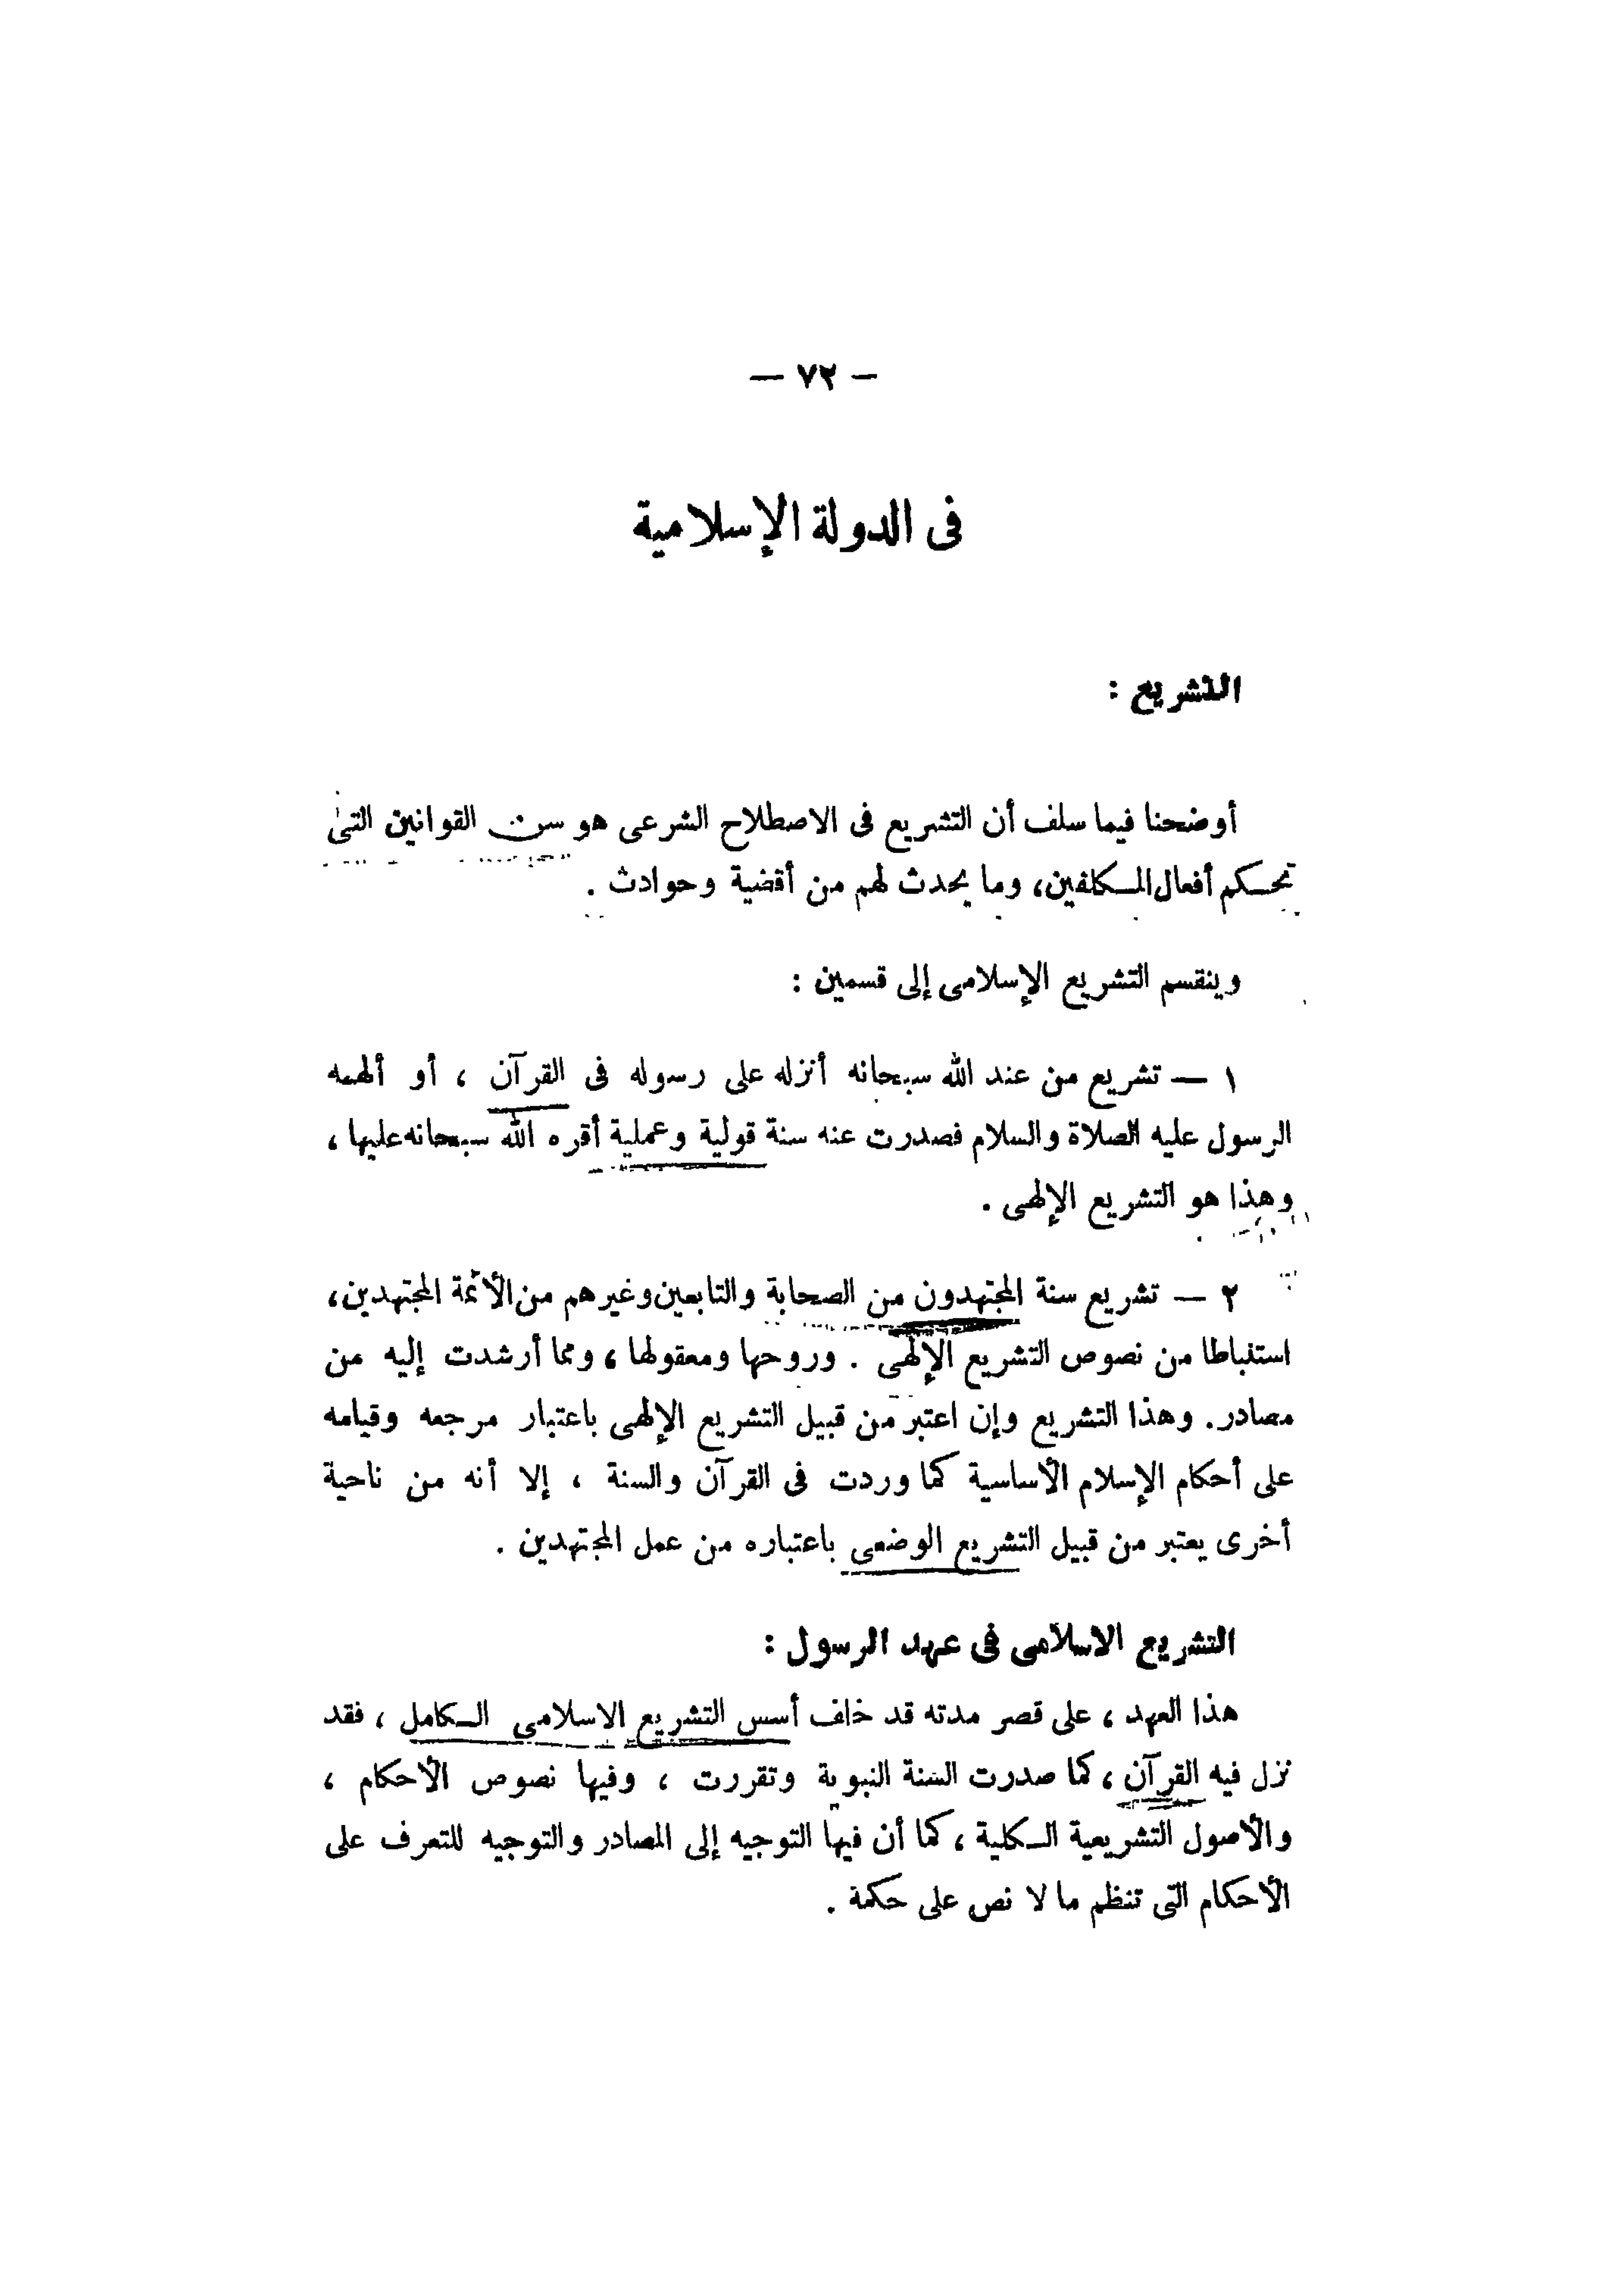 — ٧٢ —
فى الدولة الإسلامية
التشريع :
أوضحنا فيما سلف أن التشريع فى الاصطلاح الشرعى هو سن القوانين التى
تحكم أفعال المكلفين، وما يحدث لهم من أقضية وحوادث .
وينقسم التشريع الإسلامى إلى قسمين :
١ — تشريع من عند الله سبحانه أنزله على رسوله فى القرآن ، أو ألهمه
الرسول عليه الصلاة والسلام فصدرت عنه سنة قولية وعملية أقره الله سبحانه عليها ،
وهذا هو التشريع الإلهى .
٢ — تشريع سنة المجتهدون من الصحابة والتابعين وغيرهم من الأئمة المجتهدين،
استنباطا من نصوص التشريع الإلهى . وروحها ومعقولها ، ومما أرشدت إليه من
مصادر. وهذا التشريع وإن اعتبر من قبيل التشريع الإلهى باعتبار مرجعه وقيامه
على أحكام الإسلام الأساسية كما وردت فى القرآن والسنة ، إلا أنه من ناحية
أخرى يعتبر من قبيل التشريع الوضعى باعتباره من عمل المجتهدين .
التشريع الاسلامى فى عهد الرسول :
هذا العهد ، على قصر مدته قد خلف أسس التشريع الاسلامى الكامل ، فقد
نزل فيه القرآن ، كما صدرت السنة النبوية وتقررت ، وفيها نصوص الأحكام ،
والأصول التشريعية الكلية ، كما أن فيها التوجيه إلى المصادر والتوجيه للتعرف على
الأحكام التى تنظم ما لا نص على حكمة .